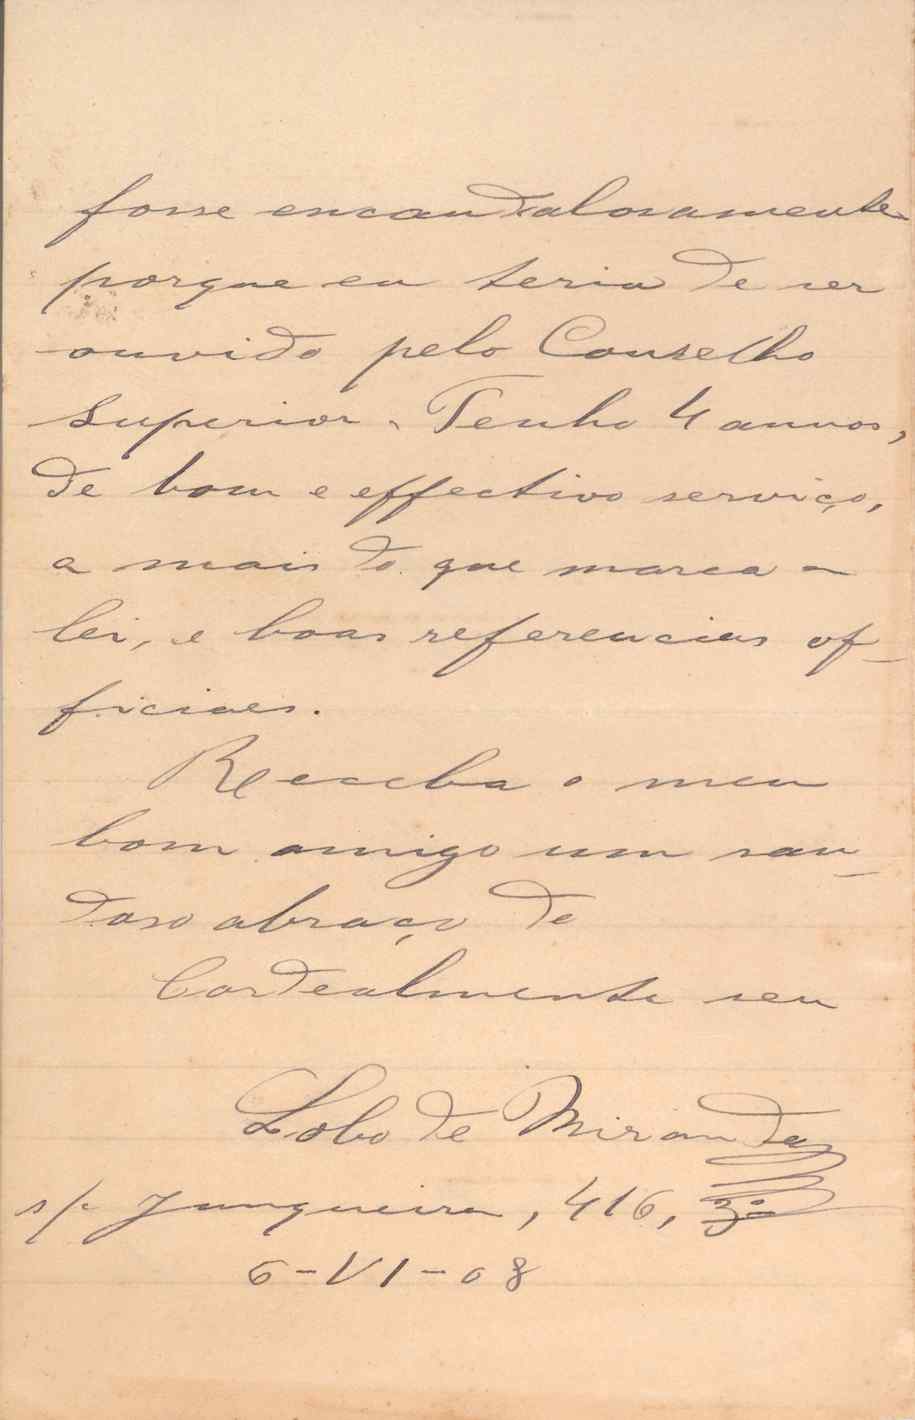 fosse escandalosamente
porque eu teria de ser
ouvido pelo Conselho
Superior. Tenho 4 annos,
de bom e effectivo serviço,
a mais do que marca a
lei, e boas referencias of-
ficiaes.
Receba o meu
bom amigo um sau-
doso abraço de
Cordealmente seu
Lobo de Miranda
s/c Junqueira, 416, 3º
6-VI-08